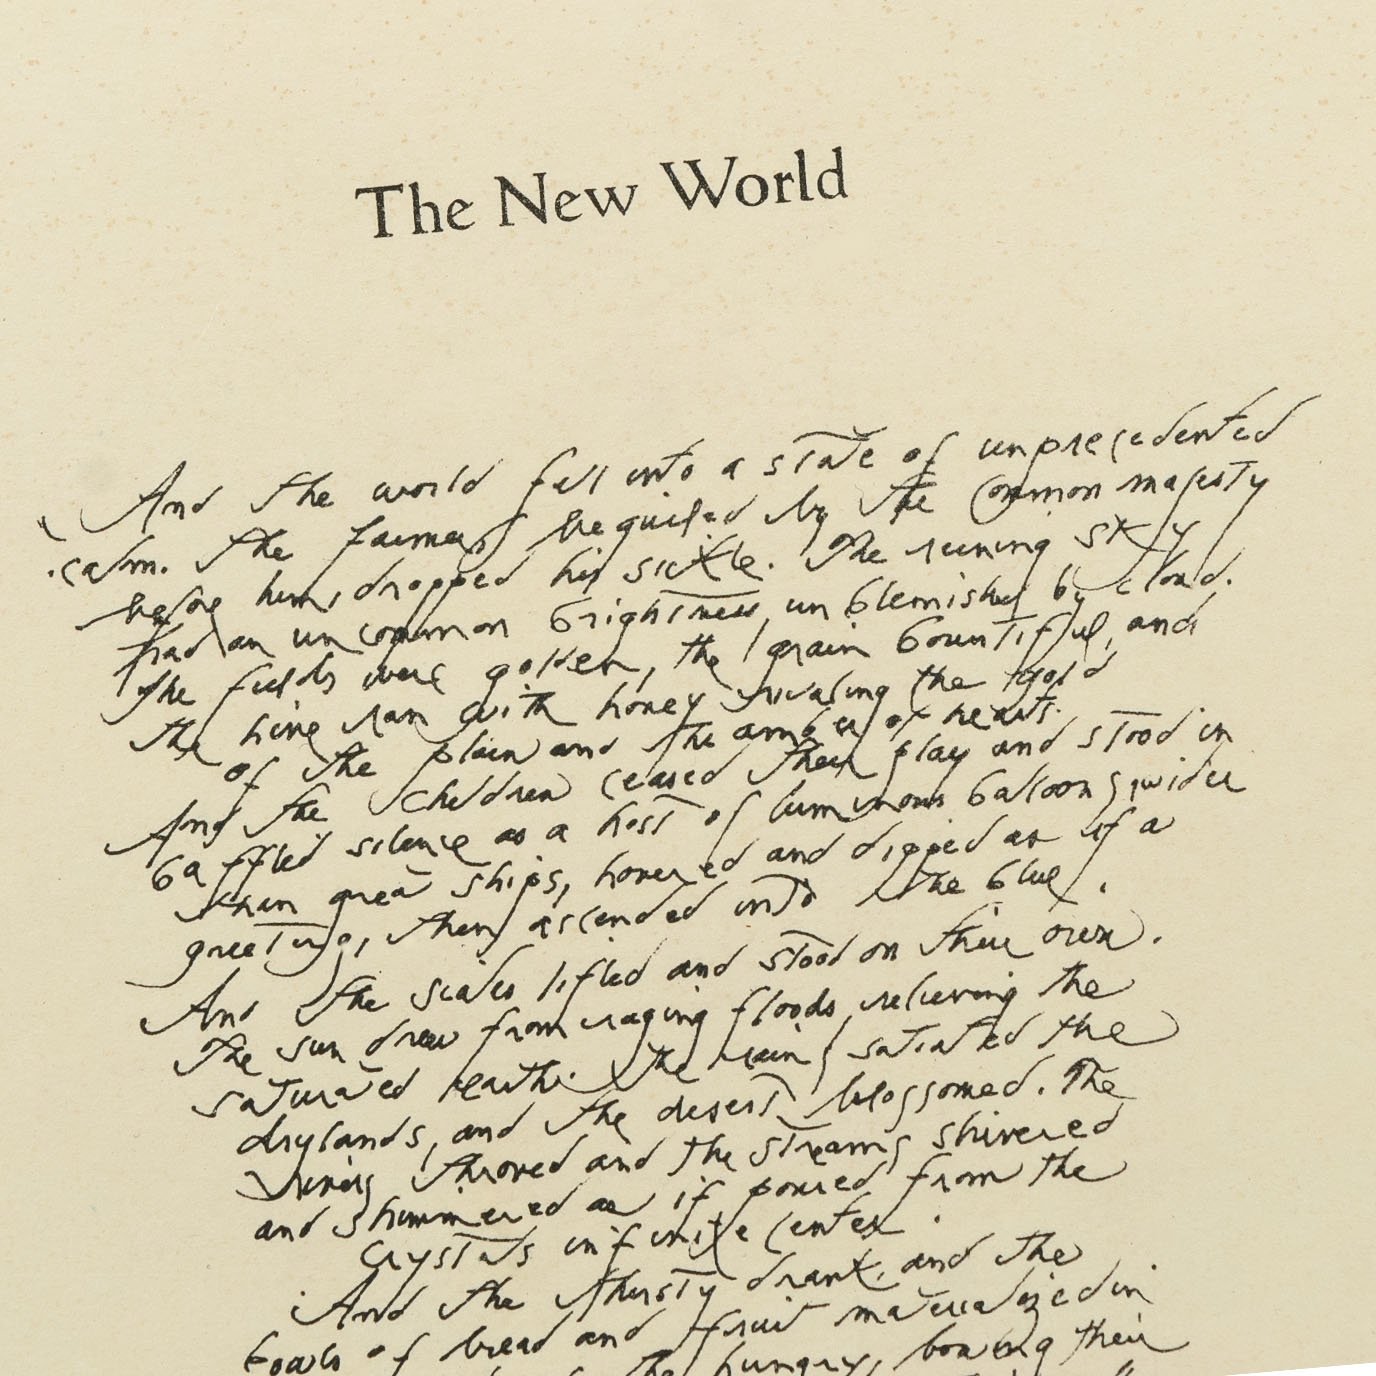 The New World
And the world fell into a state of unprecedented
calm. The farmer, beguiled by the common majesty
before him, dropped his sickle. The reigning sky
had an uncommon brightness, unblemished by cloud.
The fields were golden, the grain bountiful, and
the hive ran with honey rivaling the gold
of the plain and the amber of hearts.
And the children ceased their play and stood in
baffled silence as a host of luminous balloons, wider
than great ships, hovered and dipped as if a
greeting, then ascended into the blue.
And the scales lifted and stood on their own.
The sun drew from raging floods, relieving the
saturated earth. The rains satiated the
drylands, and the desert blossomed. The
rivers and the streams shivered
and shimmered as if poured from the
crystals infinite center.
And the thirsty drank, and the
bowls of bread and fruit materialized in
the hungry, bowing their